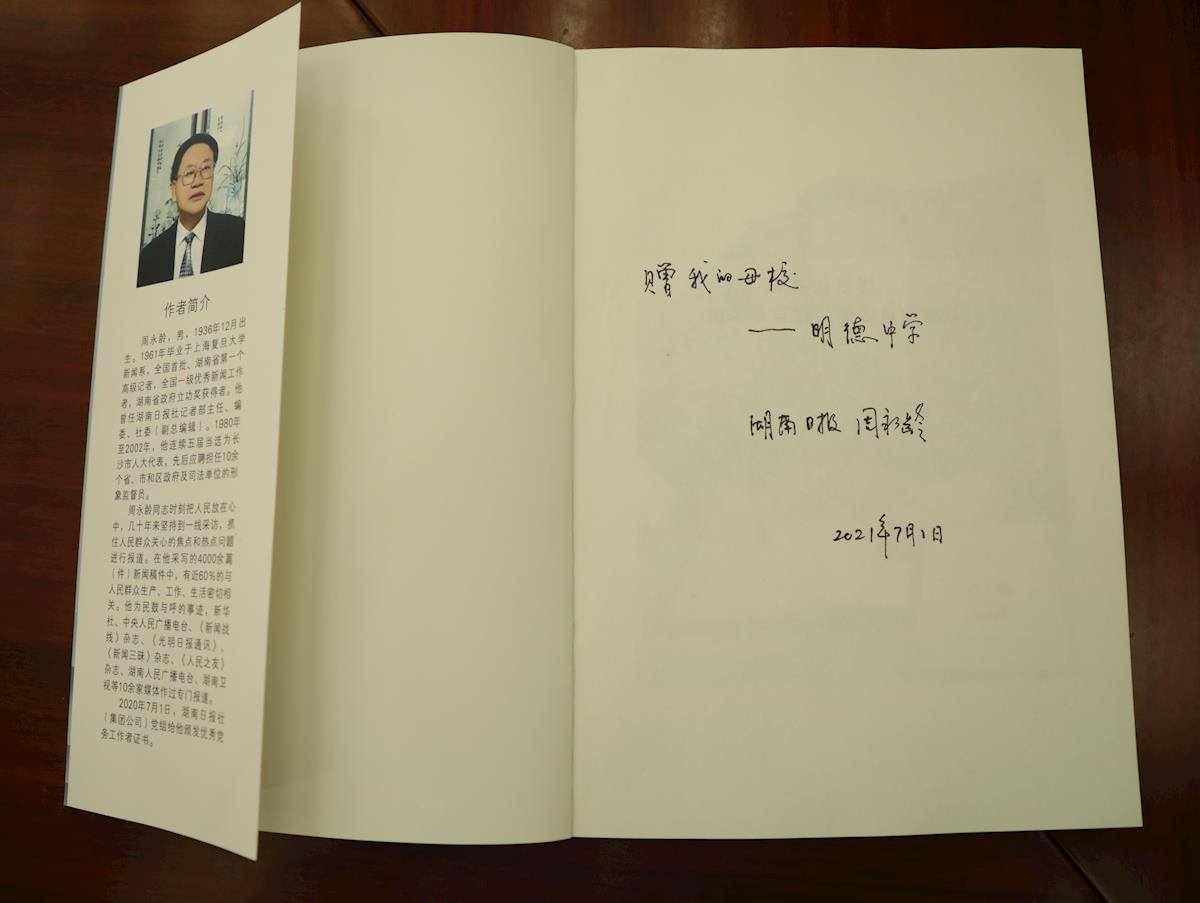 作者简介
周永龄，男，1936年12月出
生。1961年毕业于上海复旦大学
新闻系，全国首批、湖南省第一个
高级记者，全国一级优秀新闻工作
者，湖南省政府立功奖获得者。他
曾任湖南日报社记者部主任、编
委、社委（副总编辑）。1980年
至2002年，他连续五届当选为长
沙市人大代表，先后应聘担任10余
个省、市和区政府及司法单位的形
象监督员。
周永龄同志时刻把人民放在心
中，几十年来坚持到一线采访，抓
住人民群众关心的焦点和热点问题
进行报道。在他采写的4000余篇
（件）新闻稿件中，有近60%的与
人民群众生产、工作、生活密切相
关。他为民鼓与呼的事迹，新华
社、中央人民广播电台、《新闻战
线》杂志、《光明日报通讯》、
《新闻三昧》杂志、《人民之友》
杂志、湖南人民广播电台、湖南卫
视等10余家媒体作过专门报道。
2020年7月1日，湖南日报社
（集团公司）党组给他颁发优秀党
务工作者证书。
赠我的母校
——明德中学
湖南日报 周永龄
2021年7月1日